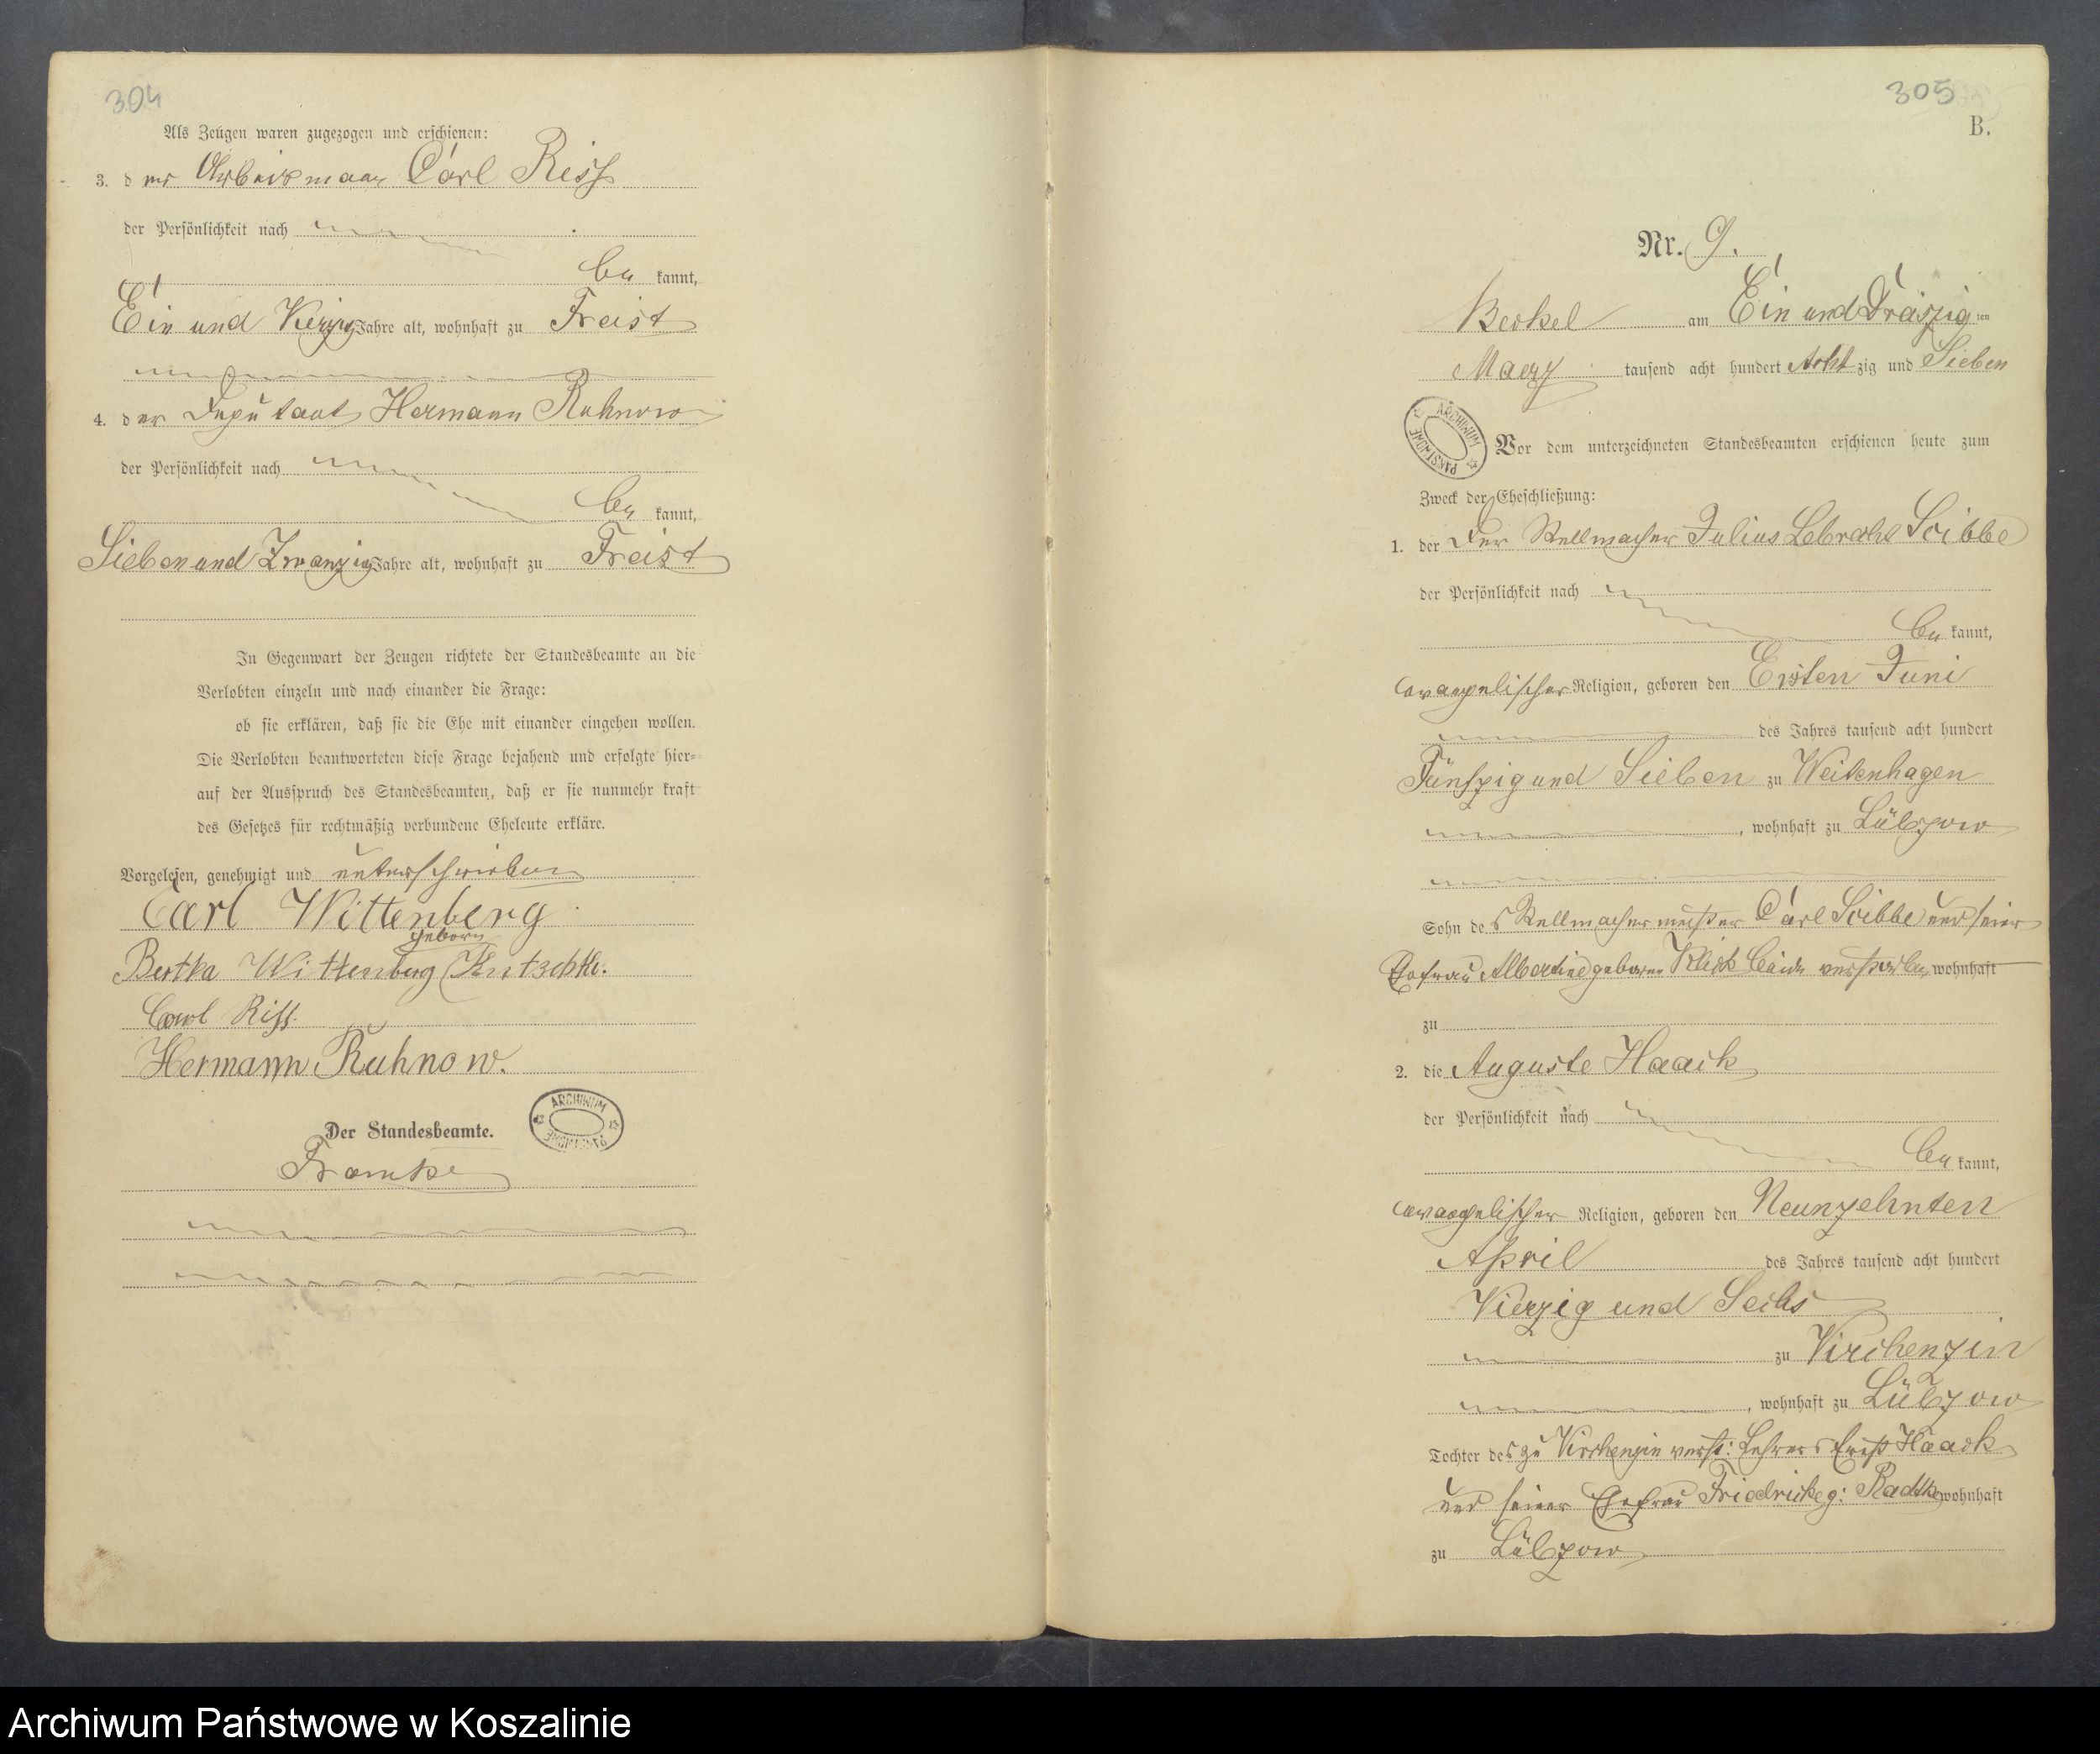 304
Als Zeugen waren zugezogen und erschienen:
3. der Arbeitsmann Carl Riss
der Persönlichkeit nach
be kannt,
Ein und Vierzig Jahre alt, wohnhaft zu Freist
4. der Deputant Hermann Ruhnow
der Persönlichkeit nach
be kannt,
Sieben und Zwanzig Jahre alt, wohnhaft zu Freist
In Gegenwart der Zeugen richtete der Standesbeamte an die
Verlobten einzeln und nach einander die Frage:
ob sie erklären, daß sie die Ehe mit einander eingehen wollen.
Die Verlobten beantworteten diese Frage bejahend und erfolgte hier-
auf der Ausspruch des Standesbeamten, daß er sie nunmehr kraft
des Gesetzes für rechtmäßig verbundene Eheleute erkläre.
Vorgelesen, genehmigt und unterschrieben
Carl Wittenberg
geborn
Bertha Wittenberg
Carl Riss.
Hermann Ruhnow.
Der Standesbeamte.
ARCHIWUM PAŃSTWOWE
305
B.
Nr. 9.
am Ein und Dreiszig ten
Maerz tausend acht hundert Acht zig und Sieben
ARCHIWUM PAŃSTWOWE
Vor dem unterzeichneten Standesbeamten erschienen heute zum
Zweck der Eheschließung:
1. der Der Stellmacher Julius Lebrecht Scibbe
der Persönlichkeit nach
be kannt,
evangelischer Religion, geboren den Ersten Juni
des Jahres tausend acht hundert
Fünfzig und Sieben zu Weitenhagen
, wohnhaft zu Lübzow
Sohn des Stellmachermeister Carl Scibbe und seiner
Ehefrau Albertine geborne Klick beide verstorben, wohnhaft
zu
2. die Auguste Haack
der Persönlichkeit nach
be kannt,
evangelischer Religion, geboren den Neunzehnten
April des Jahres tausend acht hundert
Vierzig und Sechs
zu Virchenzin
, wohnhaft zu Lübzow
Tochter des zu Virchenzin verst: Lehrers Ernst Haack
und seiner Ehefrau Friedricke g: Radtke wohnhaft
zu Lübzow
Archiwum Państwowe w Koszalinie